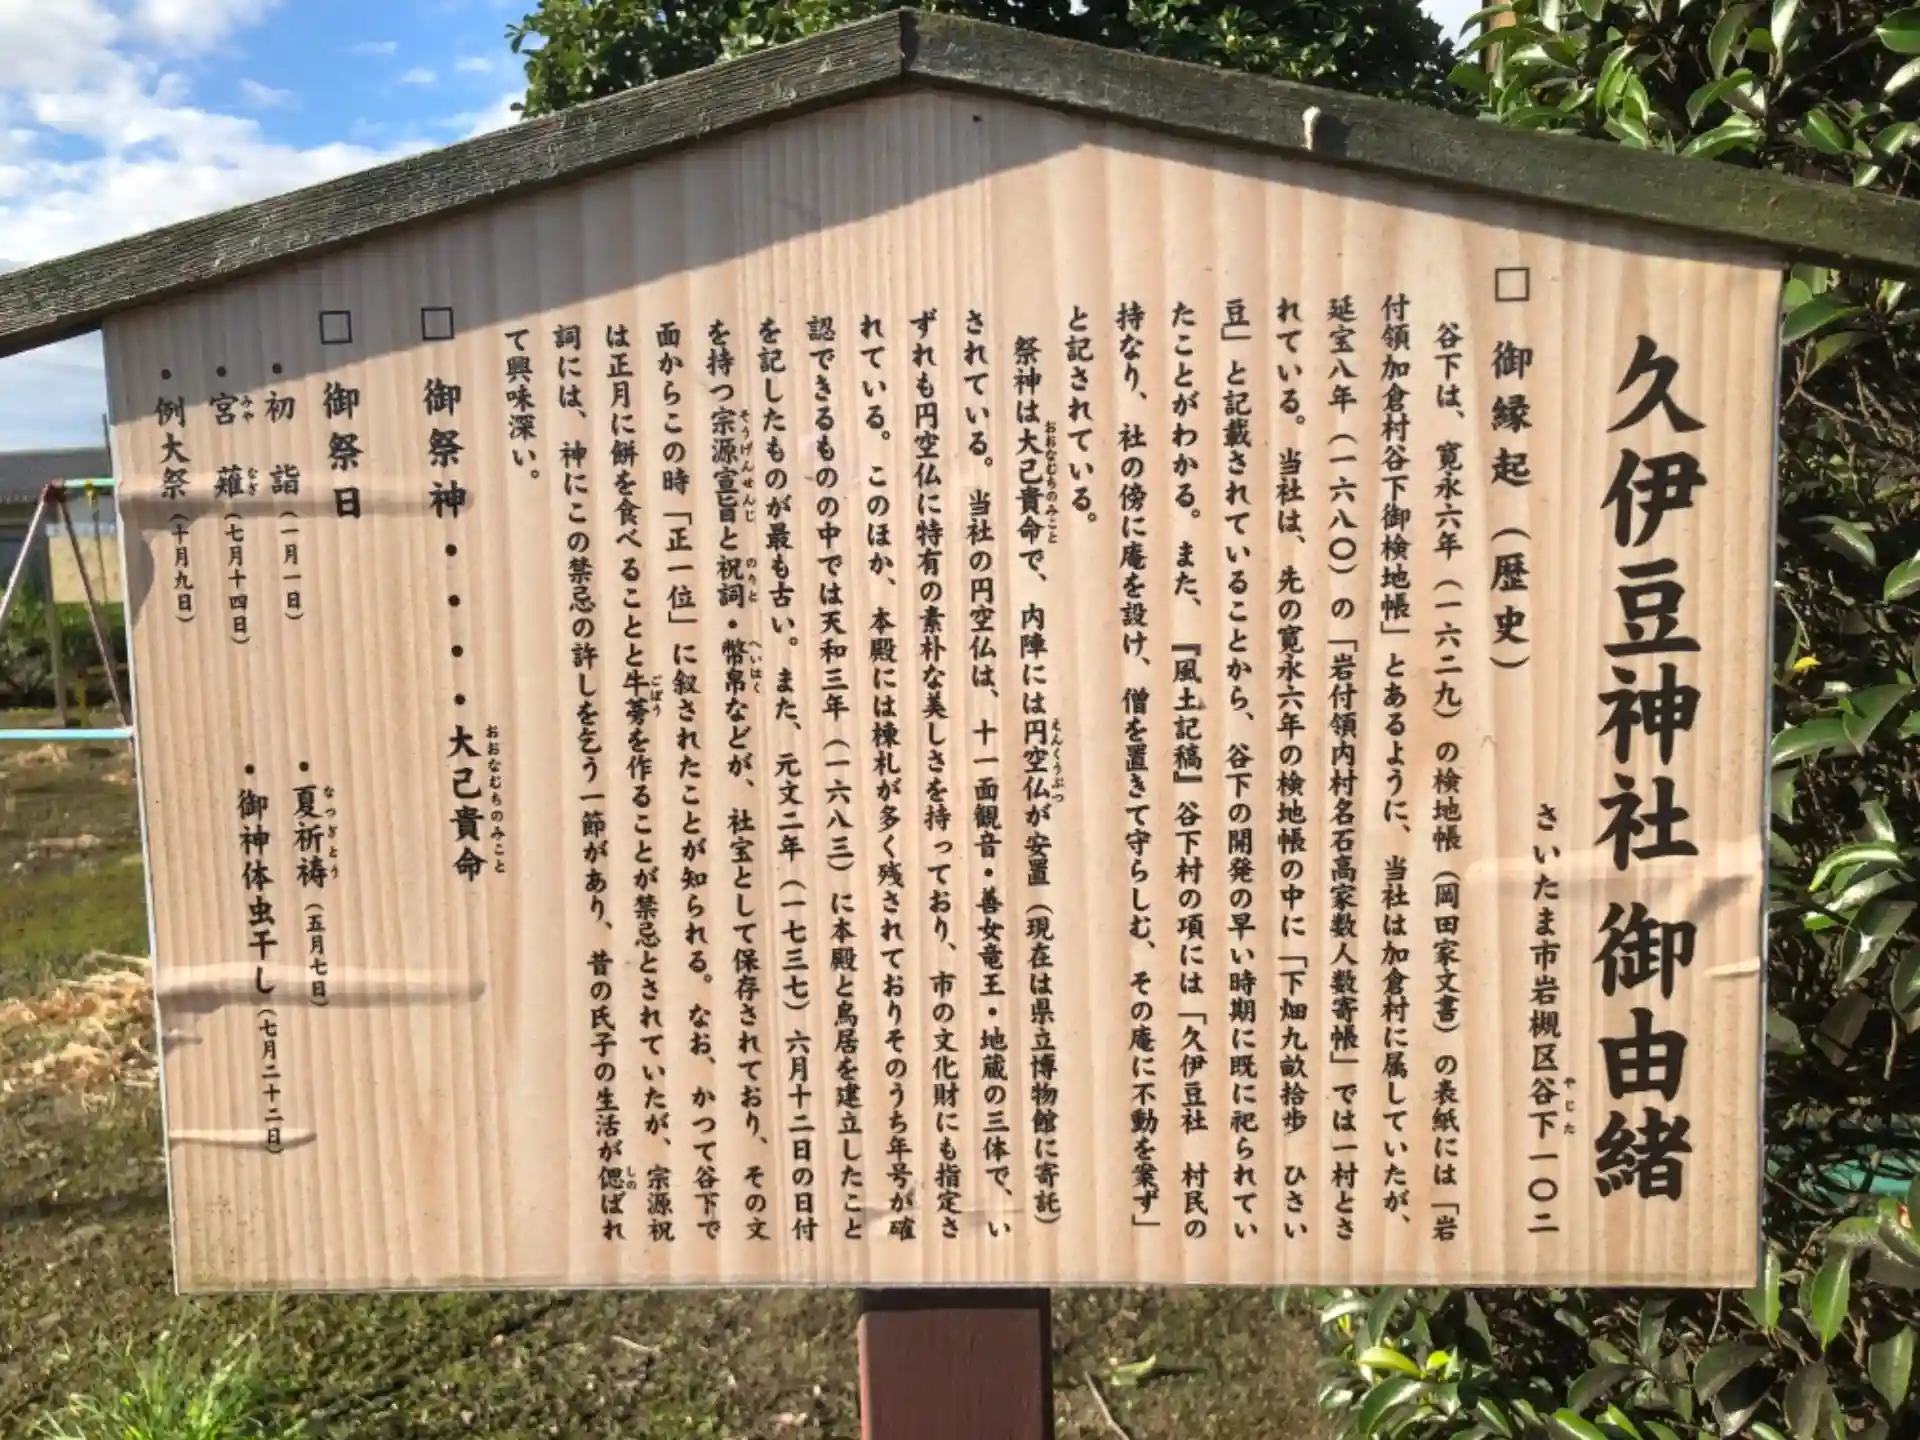 久伊豆神社 御由緒
さいたま市岩槻区谷下一〇二
やじた
□ 御縁起（歴史）
谷下は、寛永六年（一六二九）の検地帳（岡田家文書）の表紙には「岩
付領加倉村谷下御検地帳」とあるように、当社は加倉村に属していたが、
延宝八年（一六八〇）の「岩付領内村名石高家数人数寄帳」では一村とさ
れている。当社は、先の寛永六年の検地帳の中に「下畑九畝拾歩 ひさい
豆」と記載されていることから、谷下の開発の早い時期に既に祀られてい
たことがわかる。また、『風土記稿』谷下村の項には「久伊豆社 村民の
持なり、社の傍に庵を設け、僧を置きて守らしむ、その庵に不動を案ず」
と記されている。
祭神は大己貴命で、内陣には円空仏が安置（現在は県立博物館に寄託）
おおなむちのみこと
えんくうぶつ
されている。当社の円空仏は、十一面観音・善女竜王・地蔵の三体で、い
ずれも円空仏に特有の素朴な美しさを持っており、市の文化財にも指定さ
れている。このほか、本殿には棟札が多く残されておりそのうち年号が確
認できるものの中では天和三年（一六八三）に本殿と鳥居を建立したこと
を記したものが最も古い。また、元文二年（一七三七）六月十二日の日付
を持つ宗源宣旨と祝詞・幣帛などが、社宝として保存されており、その文
そうげんせんじ
のりと
へいはく
面からこの時「正一位」に叙されたことが知られる。なお、かつて谷下で
は正月に餅を食べることと牛蒡を作ることが禁忌とされていたが、宗源祝
ごぼう
詞には、神にこの禁忌の許しを乞う一節があり、昔の氏子の生活が偲ばれ
しの
て興味深い。
□ 御祭神・・・・大己貴命
おおなむちのみこと
□ 御祭日
・初 詣（一月一日）
・夏祈祷（五月七日）
なつぎとう
・宮 薙（七月十四日）
みや なぎ
・御神体虫干し（七月二十二日）
・例大祭（十月九日）